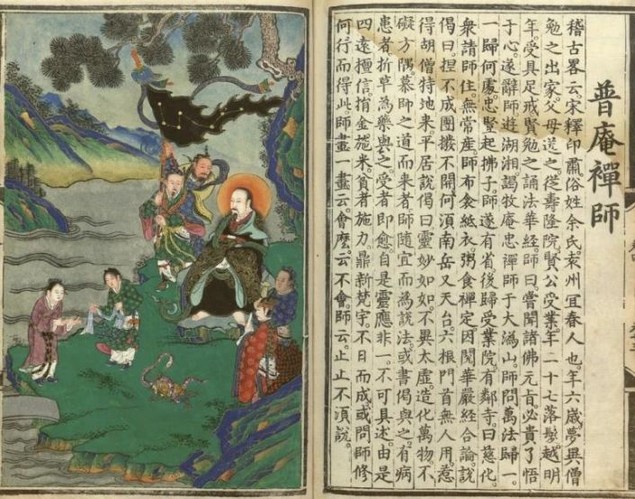 普庵禪師
稽古畧云宋釋印肅俗姓余氏袁州宜春人也年六歲夢異僧
勉之出家父母送之從壽隆院賢公受業年二十七落髮越明
年受具足戒賢勉之誦法華經師曰嘗聞諸佛元旨必貴了悟
于心遂辭師遊湖湘謁牧庵忠禪師于大溈山師問萬法歸一
一歸何處忠豎起拂子師遂有省後歸受業院有鄰寺曰慈化
衆請師住無常産師布衾紙衣粥食禪定因閱華嚴經合論說
偈曰捏不成團撥不開何須南岳又天台六根門首無人用惹
得胡僧特地来平居說偈曰靈妙如如不異太虛造化萬物不
礙方隅慕師之道而来者師隨宜而為說法或書偈與之有病
患者折草為藥與之受者即愈自是靈應非一不可具述由是
四遠檀信捐金施米貧者施力鼎新梵宇不日而成或問師修
何行而得此師畫一畫云會麼云不會師云止止不須說